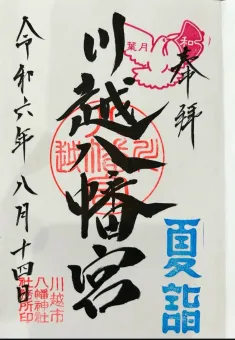 奉拝
川越八幡宮
令和六年八月十四日
夏詣
葉月
和
川越市
八幡神社
社務所印